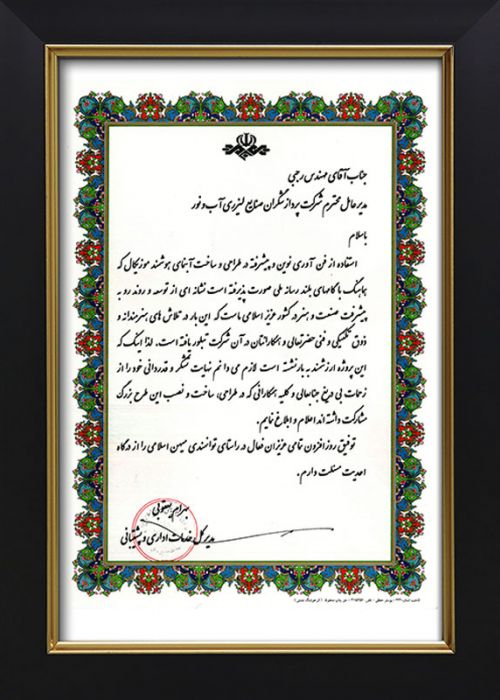 جناب آقای مهندس رجبی
مدیرعامل محترم شرکت پردازشگران صنایع لیزری آب و نور
باسلام
استفاده از فن آوری نوین و پیشرفته در طراحی و ساخت آبنمای هوشمند موزیکال که
هماهنگ با گامهای بلند رسانه ملی صورت پذیرفته است نشانه ای از توسعه و روند رو به
پیشرفت صنعت و هنر در کشور عزیز اسلامی ماست که این بار در تلاش های هنرمندانه و
ذوق تکنیکی و فنی حضرتعالی و همکارانتان در آن شرکت تبلور یافته است. لذا اینک که
این پروژه ارزشمند به بار نشسته است لازم می دانم نهایت تشکر و قدردانی خود را از
زحمات بی دریغ جنابعالی و کلیه همکارانی که در طراحی، ساخت و نصب این طرح بزرگ
مشارکت داشته اند اعلام و ابلاغ نمایم.
توفیق روزافزون تمامی عزیزان فعال در راستای توانمندی میهن اسلامی را از درگاه
احدیت مسئلت دارم.
بهرام
مدیرکل خدمات اداری و پشتیبانی